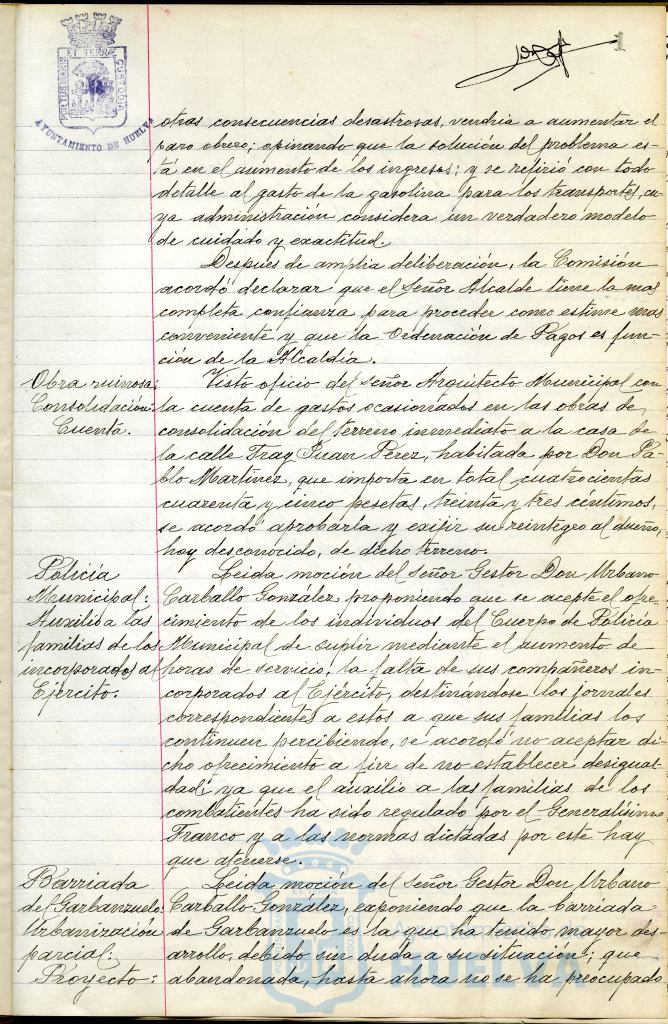 1
PORTUS MARIS ET TERRAE CUSTODIA
AYUNTAMIENTO DE HUELVA
otras consecuencias desastrosas, vendria a aumentar el
paro obrero; opinando que la solución del problema es-
tá en el aumento de los ingresos; y se refirió con todo
detalle al gasto de la gasolina para los transportes, cu-
ya administración considera un verdadero modelo
de cuidado y exactitud.
Después de amplia deliberación, la Comisión
acordó declarar que el Señor Alcalde tiene la mas
completa confianza para proceder como estime mas
conveniente y que la Ordenación de Pagos es fun-
ción de la Alcaldía.
Obra ruinosa:
Consolidación:
Cuenta.
Visto oficio del señor Arquitecto Municipal con
la cuenta de gastos ocasionados en las obras de
consolidación del terreno inmediato a la casa de
la calle Fray Juan Pérez, habitada por Don Pa-
blo Martínez, que importa en total cuatrocientas
cuarenta y cinco pesetas, treinta y tres céntimos,
se acordó aprobarla y exijir su reintegro al dueño,
hoy desconocido, de dicho terreno.
Policía
Municipal:
Auxilio a las
familias de los
incorporados al
Ejército.
Leida moción del señor Gestor Don Urbano
Carballo González, proponiendo que se acepte el ofre-
cimiento de los individuos del Cuerpo de Policia
Municipal de suplir mediante el aumento de
horas de servicio, la falta de sus compañeros in-
corporados al Ejército, destinandose los jornales
correspondientes a estos a que sus familias los
continuen percibiendo, se acordó no aceptar di-
cho ofrecimiento a fin de no establecer desigual-
dad; ya que el auxilio a las familias de los
combatientes ha sido regulado por el Generalísimo
Franco y a las normas dictadas por este hay
que atenerse.
Barriada
del Garbanzuelo:
Urbanización
parcial:
Proyecto:
Leida moción del señor Gestor Don Urbano
Carballo González, exponiendo que la barriada
de Garbanzuelo es la que ha tenido mayor des-
arrollo, debido sin duda a su situación; que
abandonada, hasta ahora no se ha preocupado
Ayuntamiento de
HUELVA